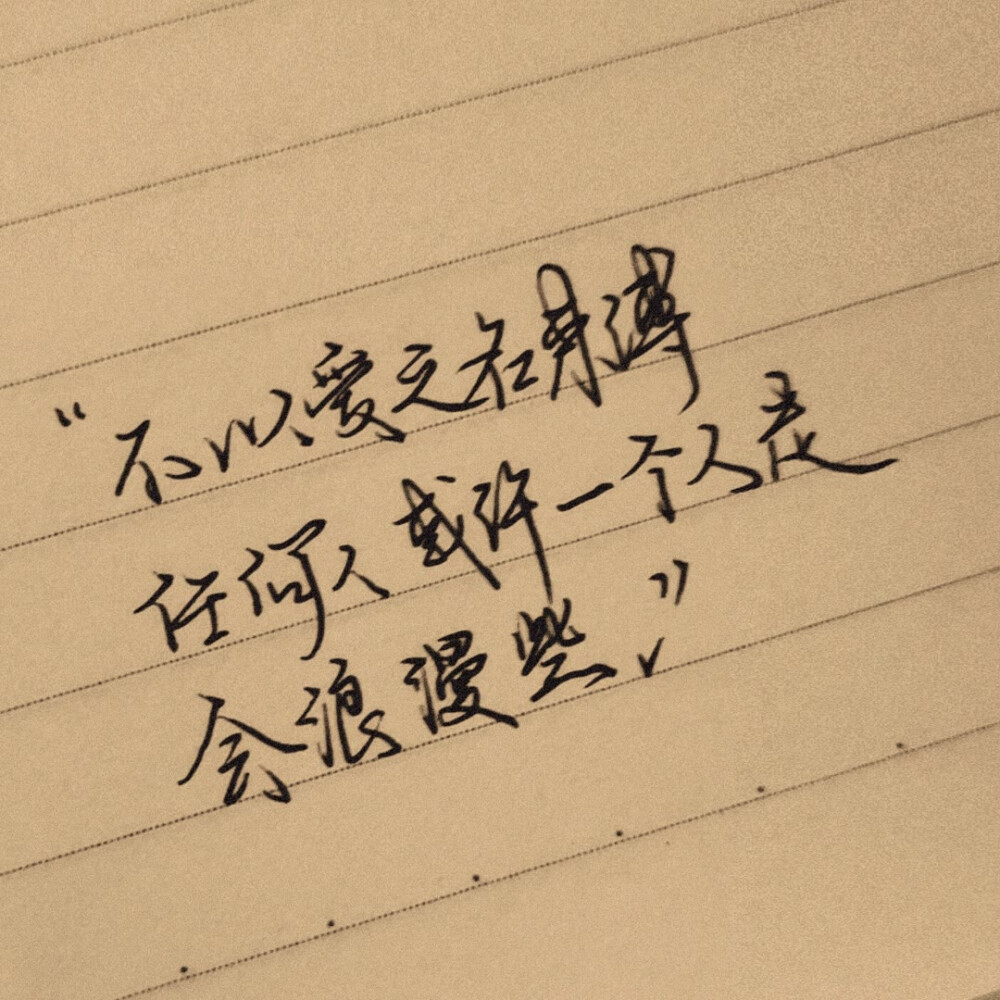 “不以爱之名束缚
任何人 或许一个人走
会浪漫些，”